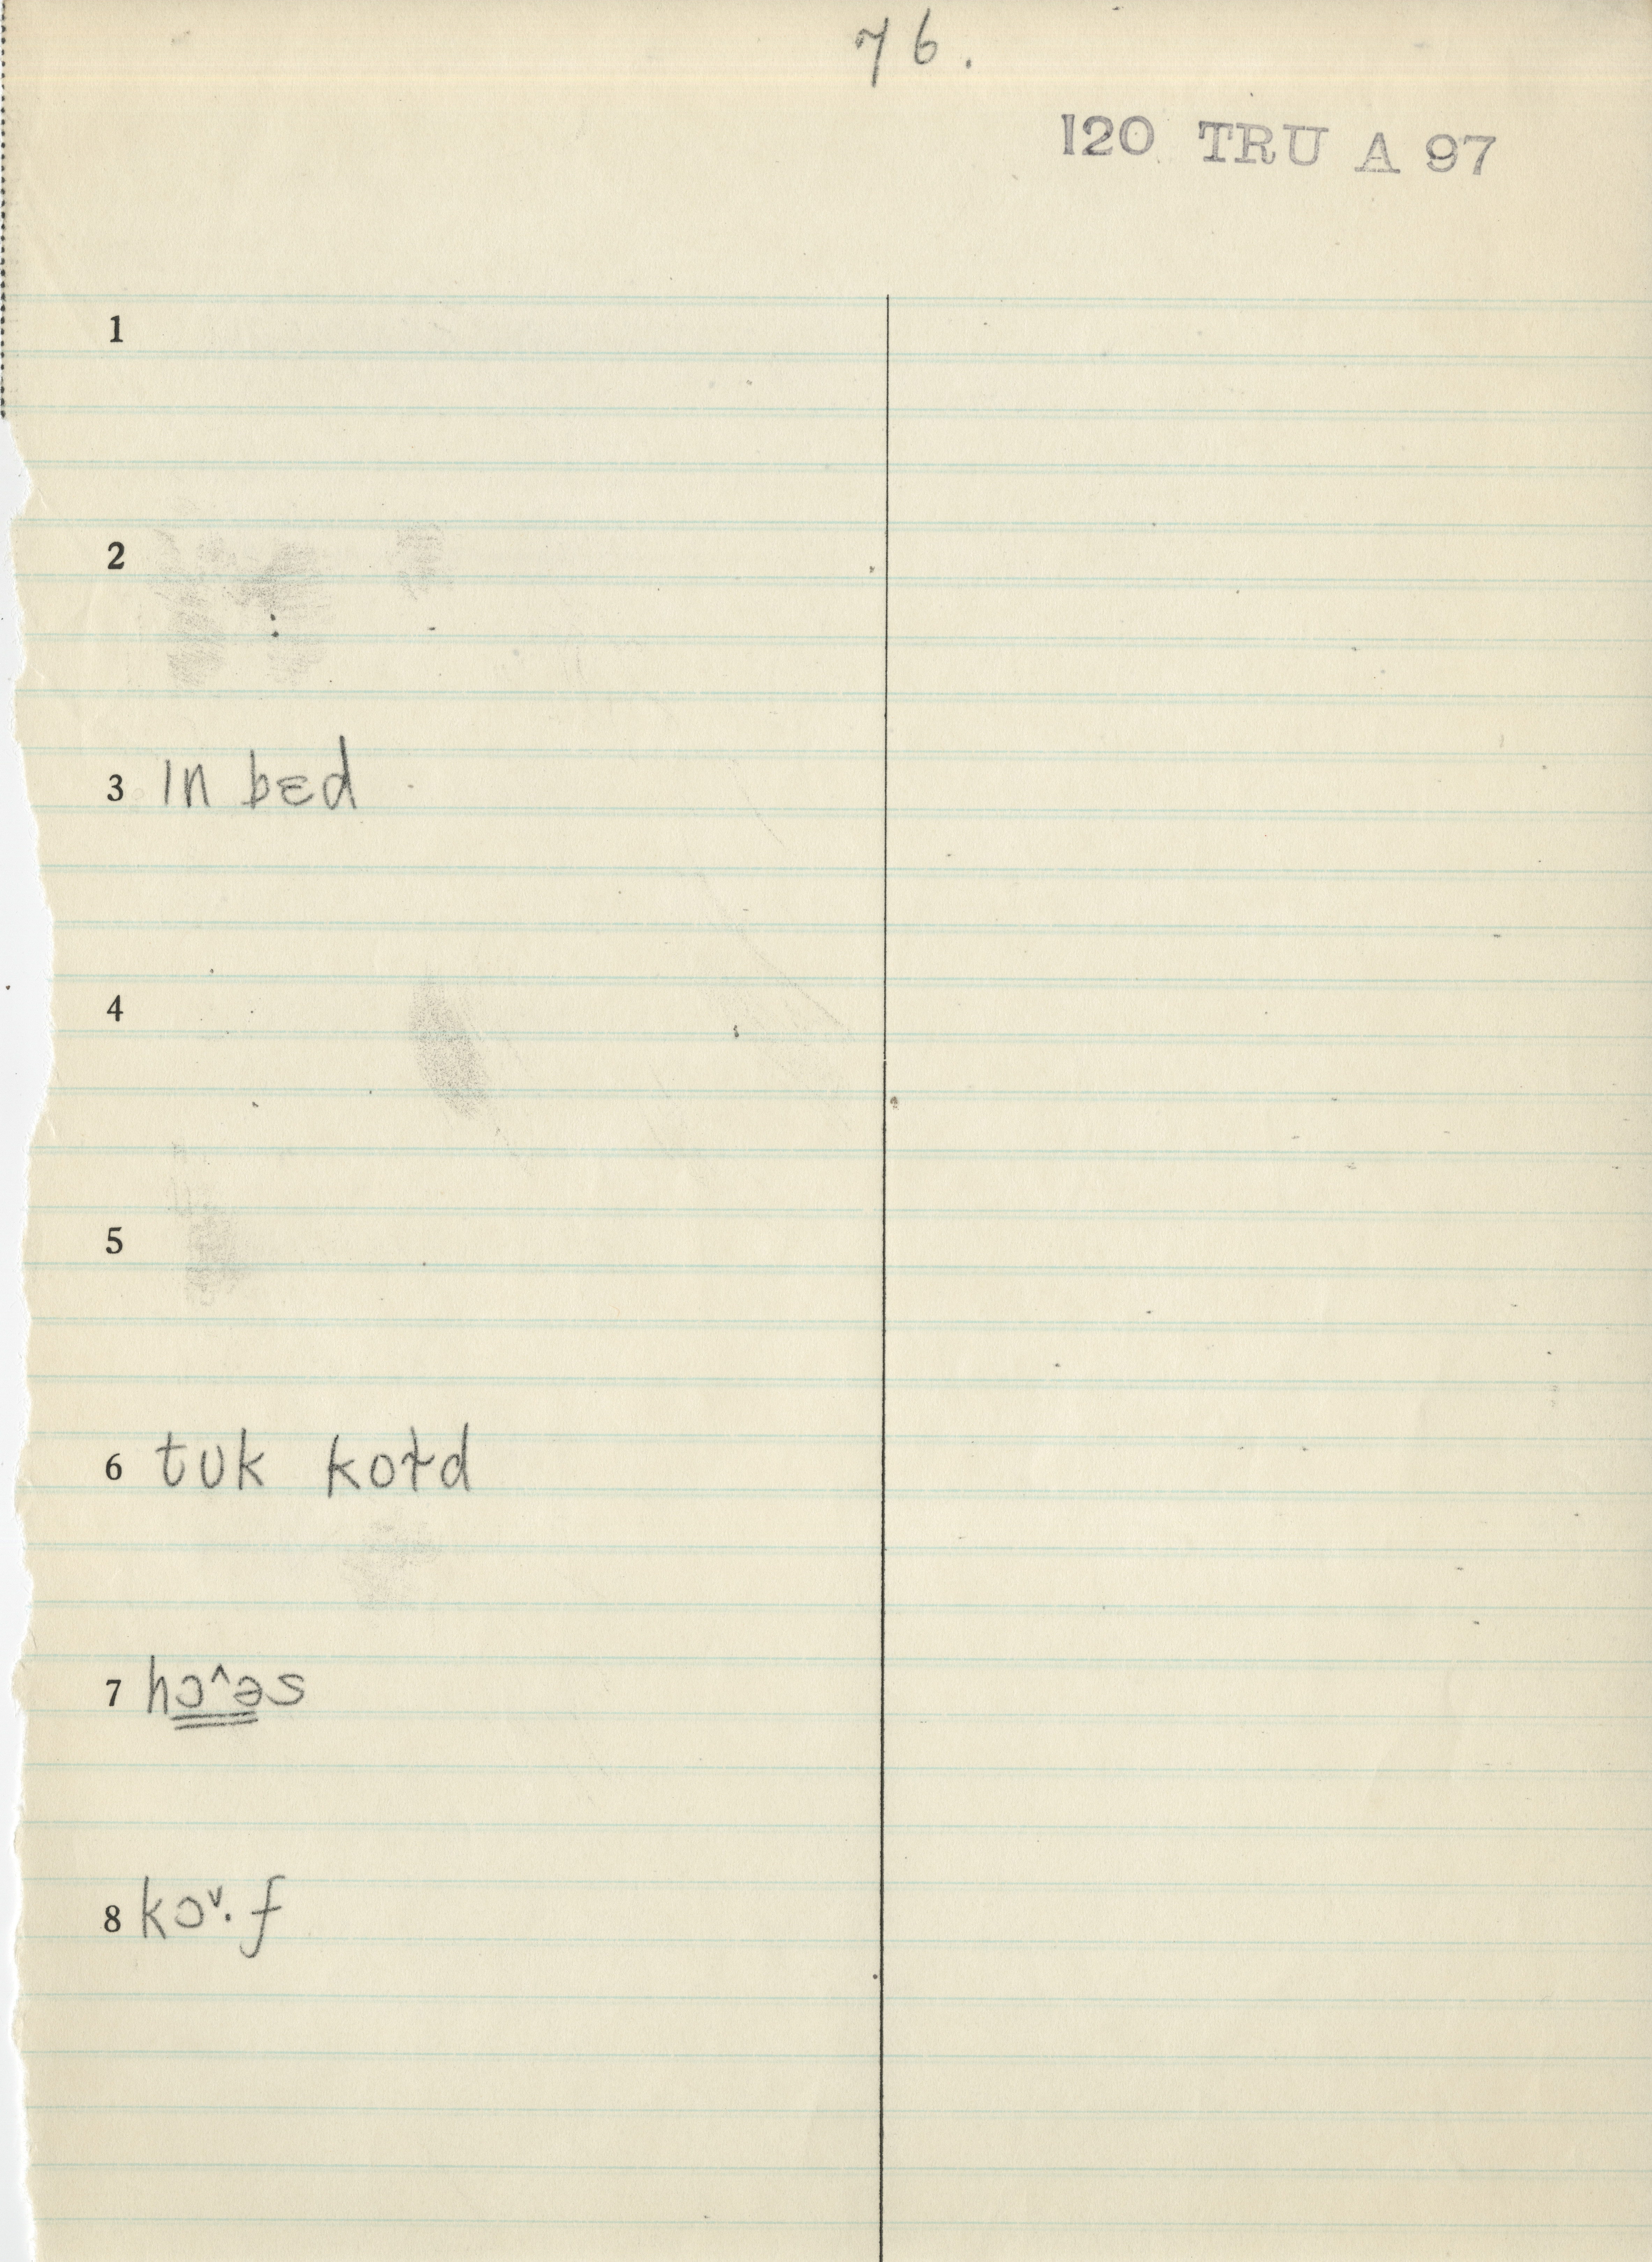 76.
120 TRU A 97
1
2
3 ɪn bɛd
4
5
6 tʊk koɫd
7 hɔ^əs
8 kɔᵛ·f